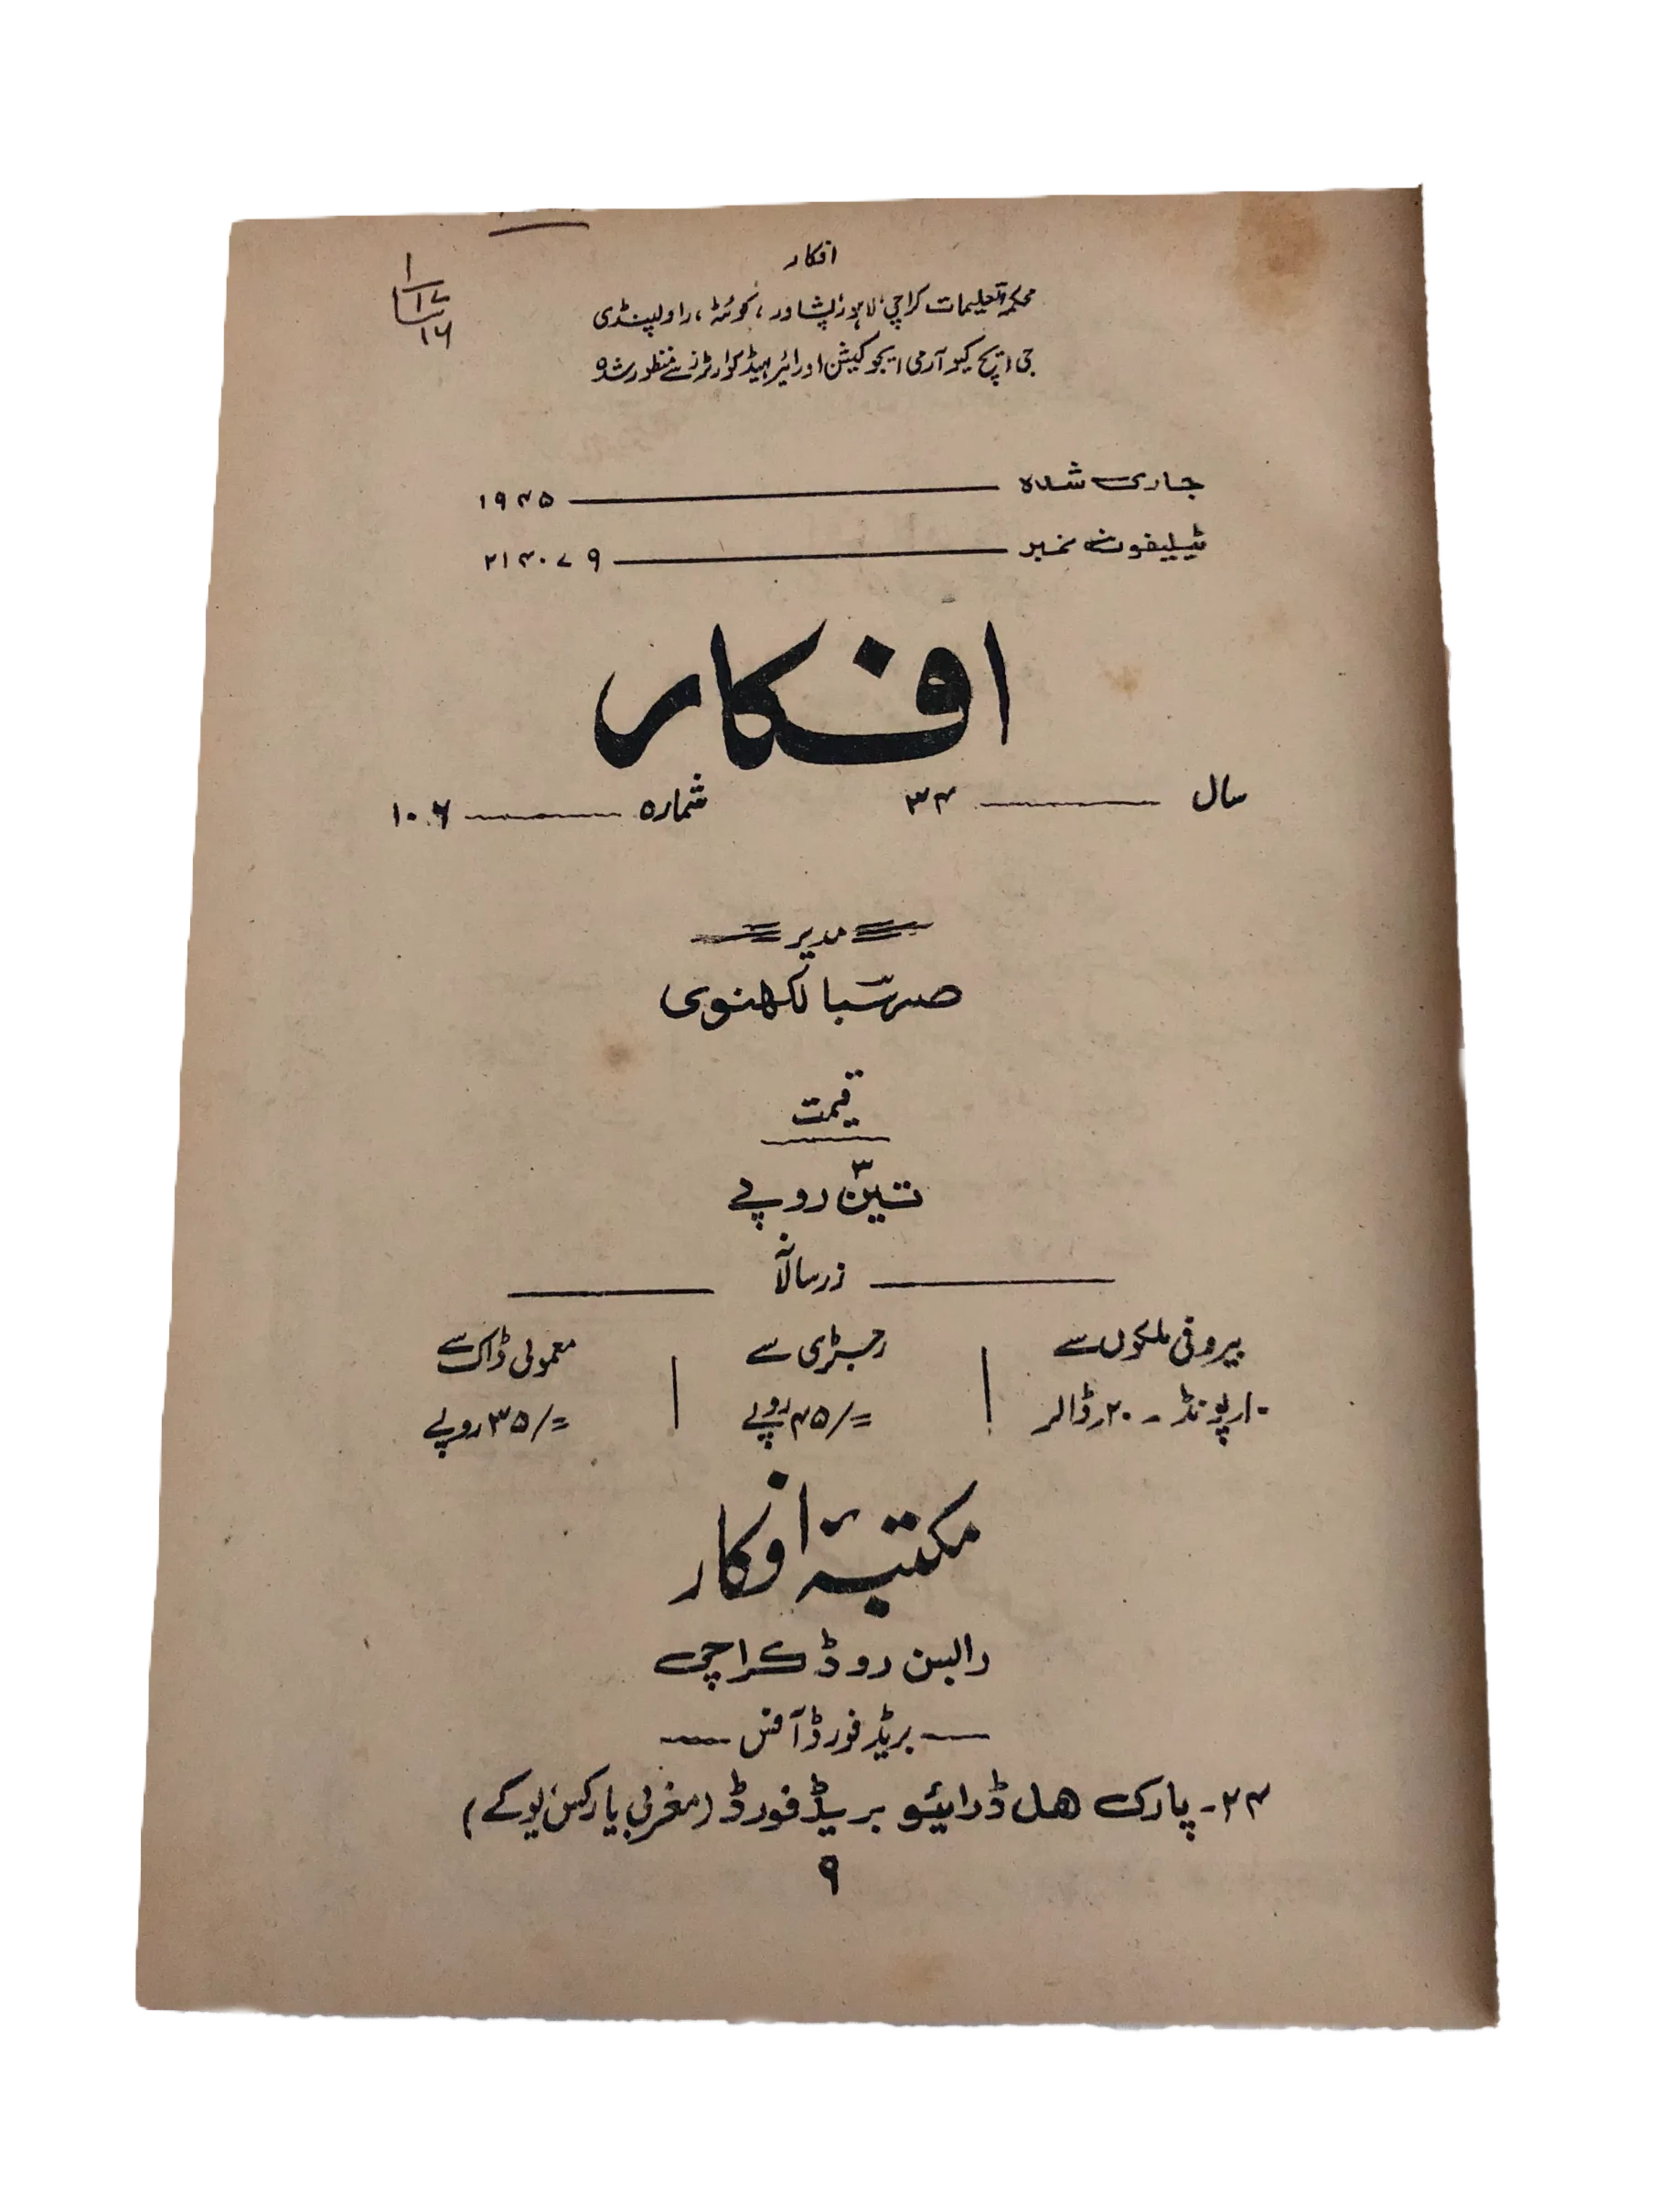 ۱
۱۷
۱۶
افکار
محکمۂ تعلیمات کراچی، لاہور، پشاور، کوئٹہ، راولپنڈی
جی ایچ کیو آرمی ایجوکیشن اور ائیر ہیڈ کوارٹرز سے منظور شدہ
جاری شدہ ۱۹۴۵
ٹیلیفون نمبر ۲۱۴۰۷۹
افکار
سال ۳۴ شمارہ ۱۰۶
مدیر
صہبا لکھنوی
قیمت
تین۳ روپے
زر سالانہ
بیرونی ملکوں سے | رجسٹری سے | معمولی ڈاک سے
۱۰ر پونڈ ۔ ۲۰ر ڈالر | ۴۵/= روپے | ۳۵/= روپے
مکتبۂ افکار
رابسن روڈ کراچی
بریڈ فورڈ آفس
۲۴۔ پارک ہل ڈرائیو بریڈ فورڈ (مغربی یارکس یو کے)
۹